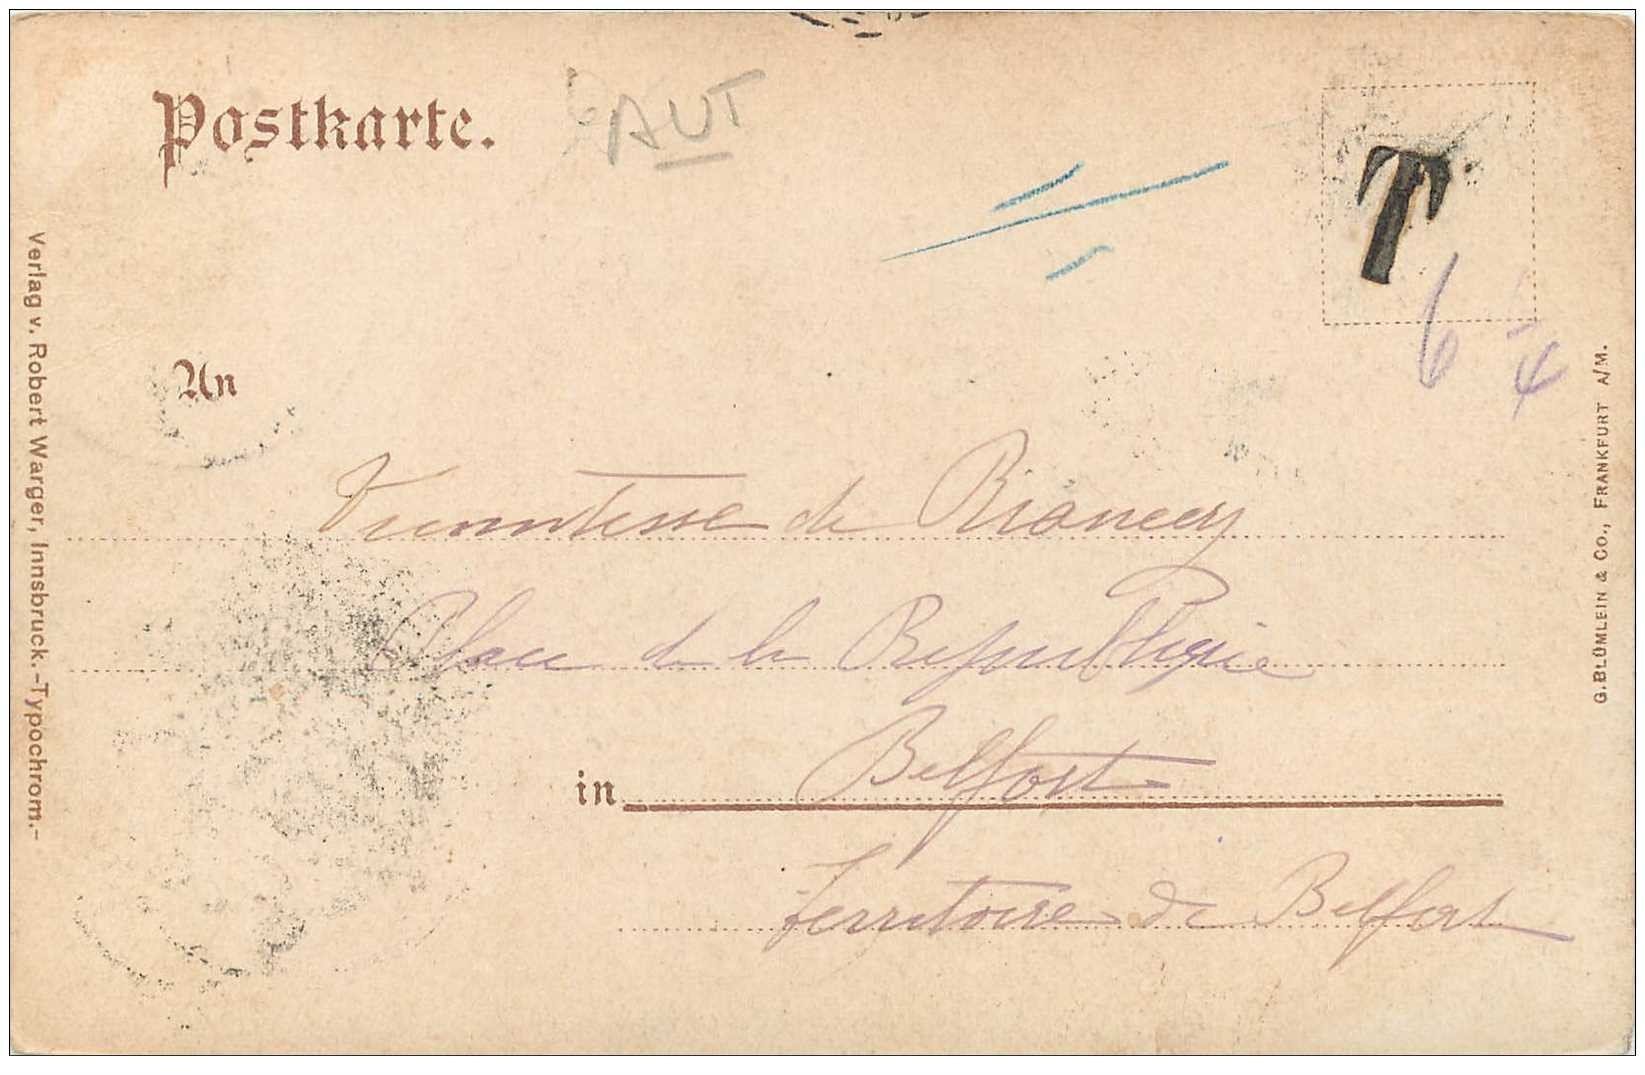 Postkarte.
AUT
T
6 4
An
Vicomtesse de Riancey
Place de la République
in Belfort
Territoire de Belfort
Verlag v. Robert Warger, Innsbruck.-Typochrom.-
G. BLÜMLEIN & CO., FRANKFURT A/M.